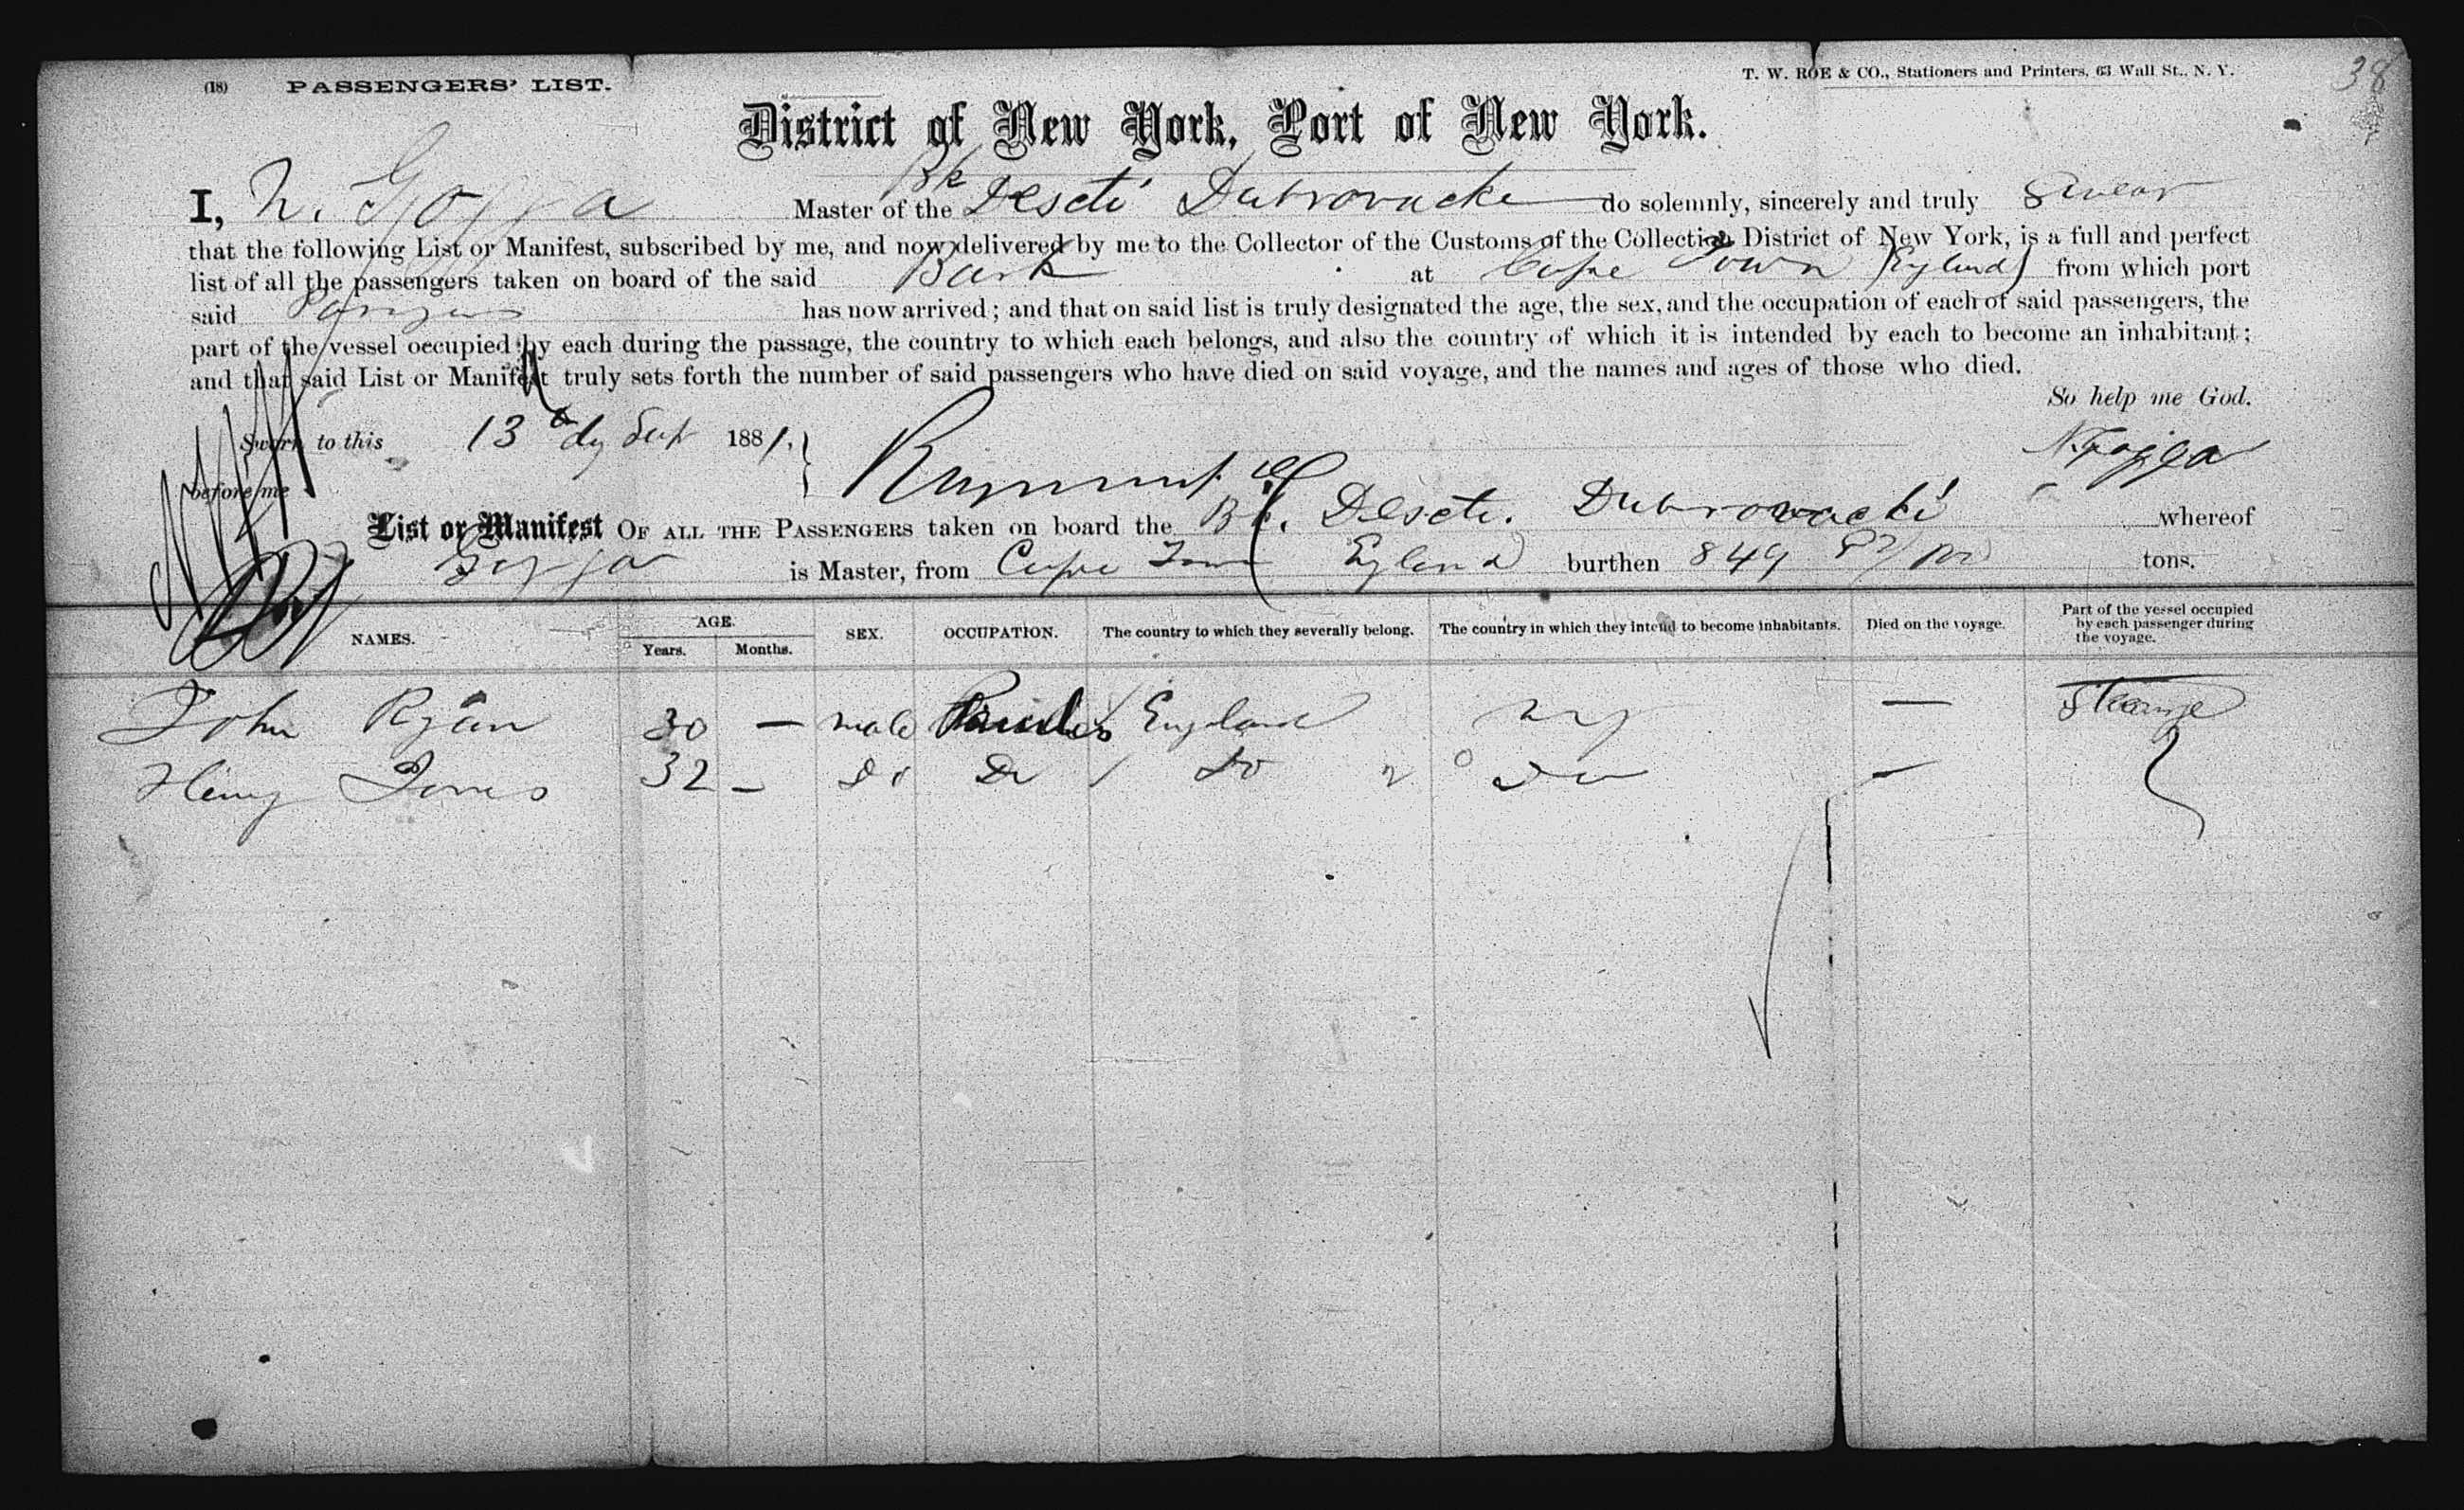 (18) PASSENGERS' LIST.
T. W. ROE & CO., Stationers and Printers, 63 Wall St., N. Y.
38
District of New York, Port of New York.
I, N. Gozza Master of the Bk Deseti Dubrovacki do solemnly, sincerely and truly swear
that the following List or Manifest, subscribed by me, and now delivered by me to the Collector of the Customs of the Collection District of New York, is a full and perfect
list of all the passengers taken on board of the said Bark at Cape Town (England) from which port
said has now arrived; and that on said list is truly designated the age, the sex, and the occupation of each of said passengers, the
part of the vessel occupied by each during the passage, the country to which each belongs, and also the country of which it is intended by each to become an inhabitant;
and that said List or Manifest truly sets forth the number of said passengers who have died on said voyage, and the names and ages of those who died.
So help me God.
Sworn to this 13th dy Sept 1881. N. Gozza
before me
List or Manifest OF ALL THE PASSENGERS taken on board the Bk. Deseti Dubrovacki whereof
Gozza is Master, from Cape Town England burthen 849 87/100 tons.
NAMES. AGE. Years. Months. SEX. OCCUPATION. The country to which they severally belong. The country in which they intend to become inhabitants. Died on the voyage. Part of the vessel occupied by each passenger during the voyage.
John Ryan 30 — male England NY — Steerage
Henry Jones 32 — Do Do Do Do —